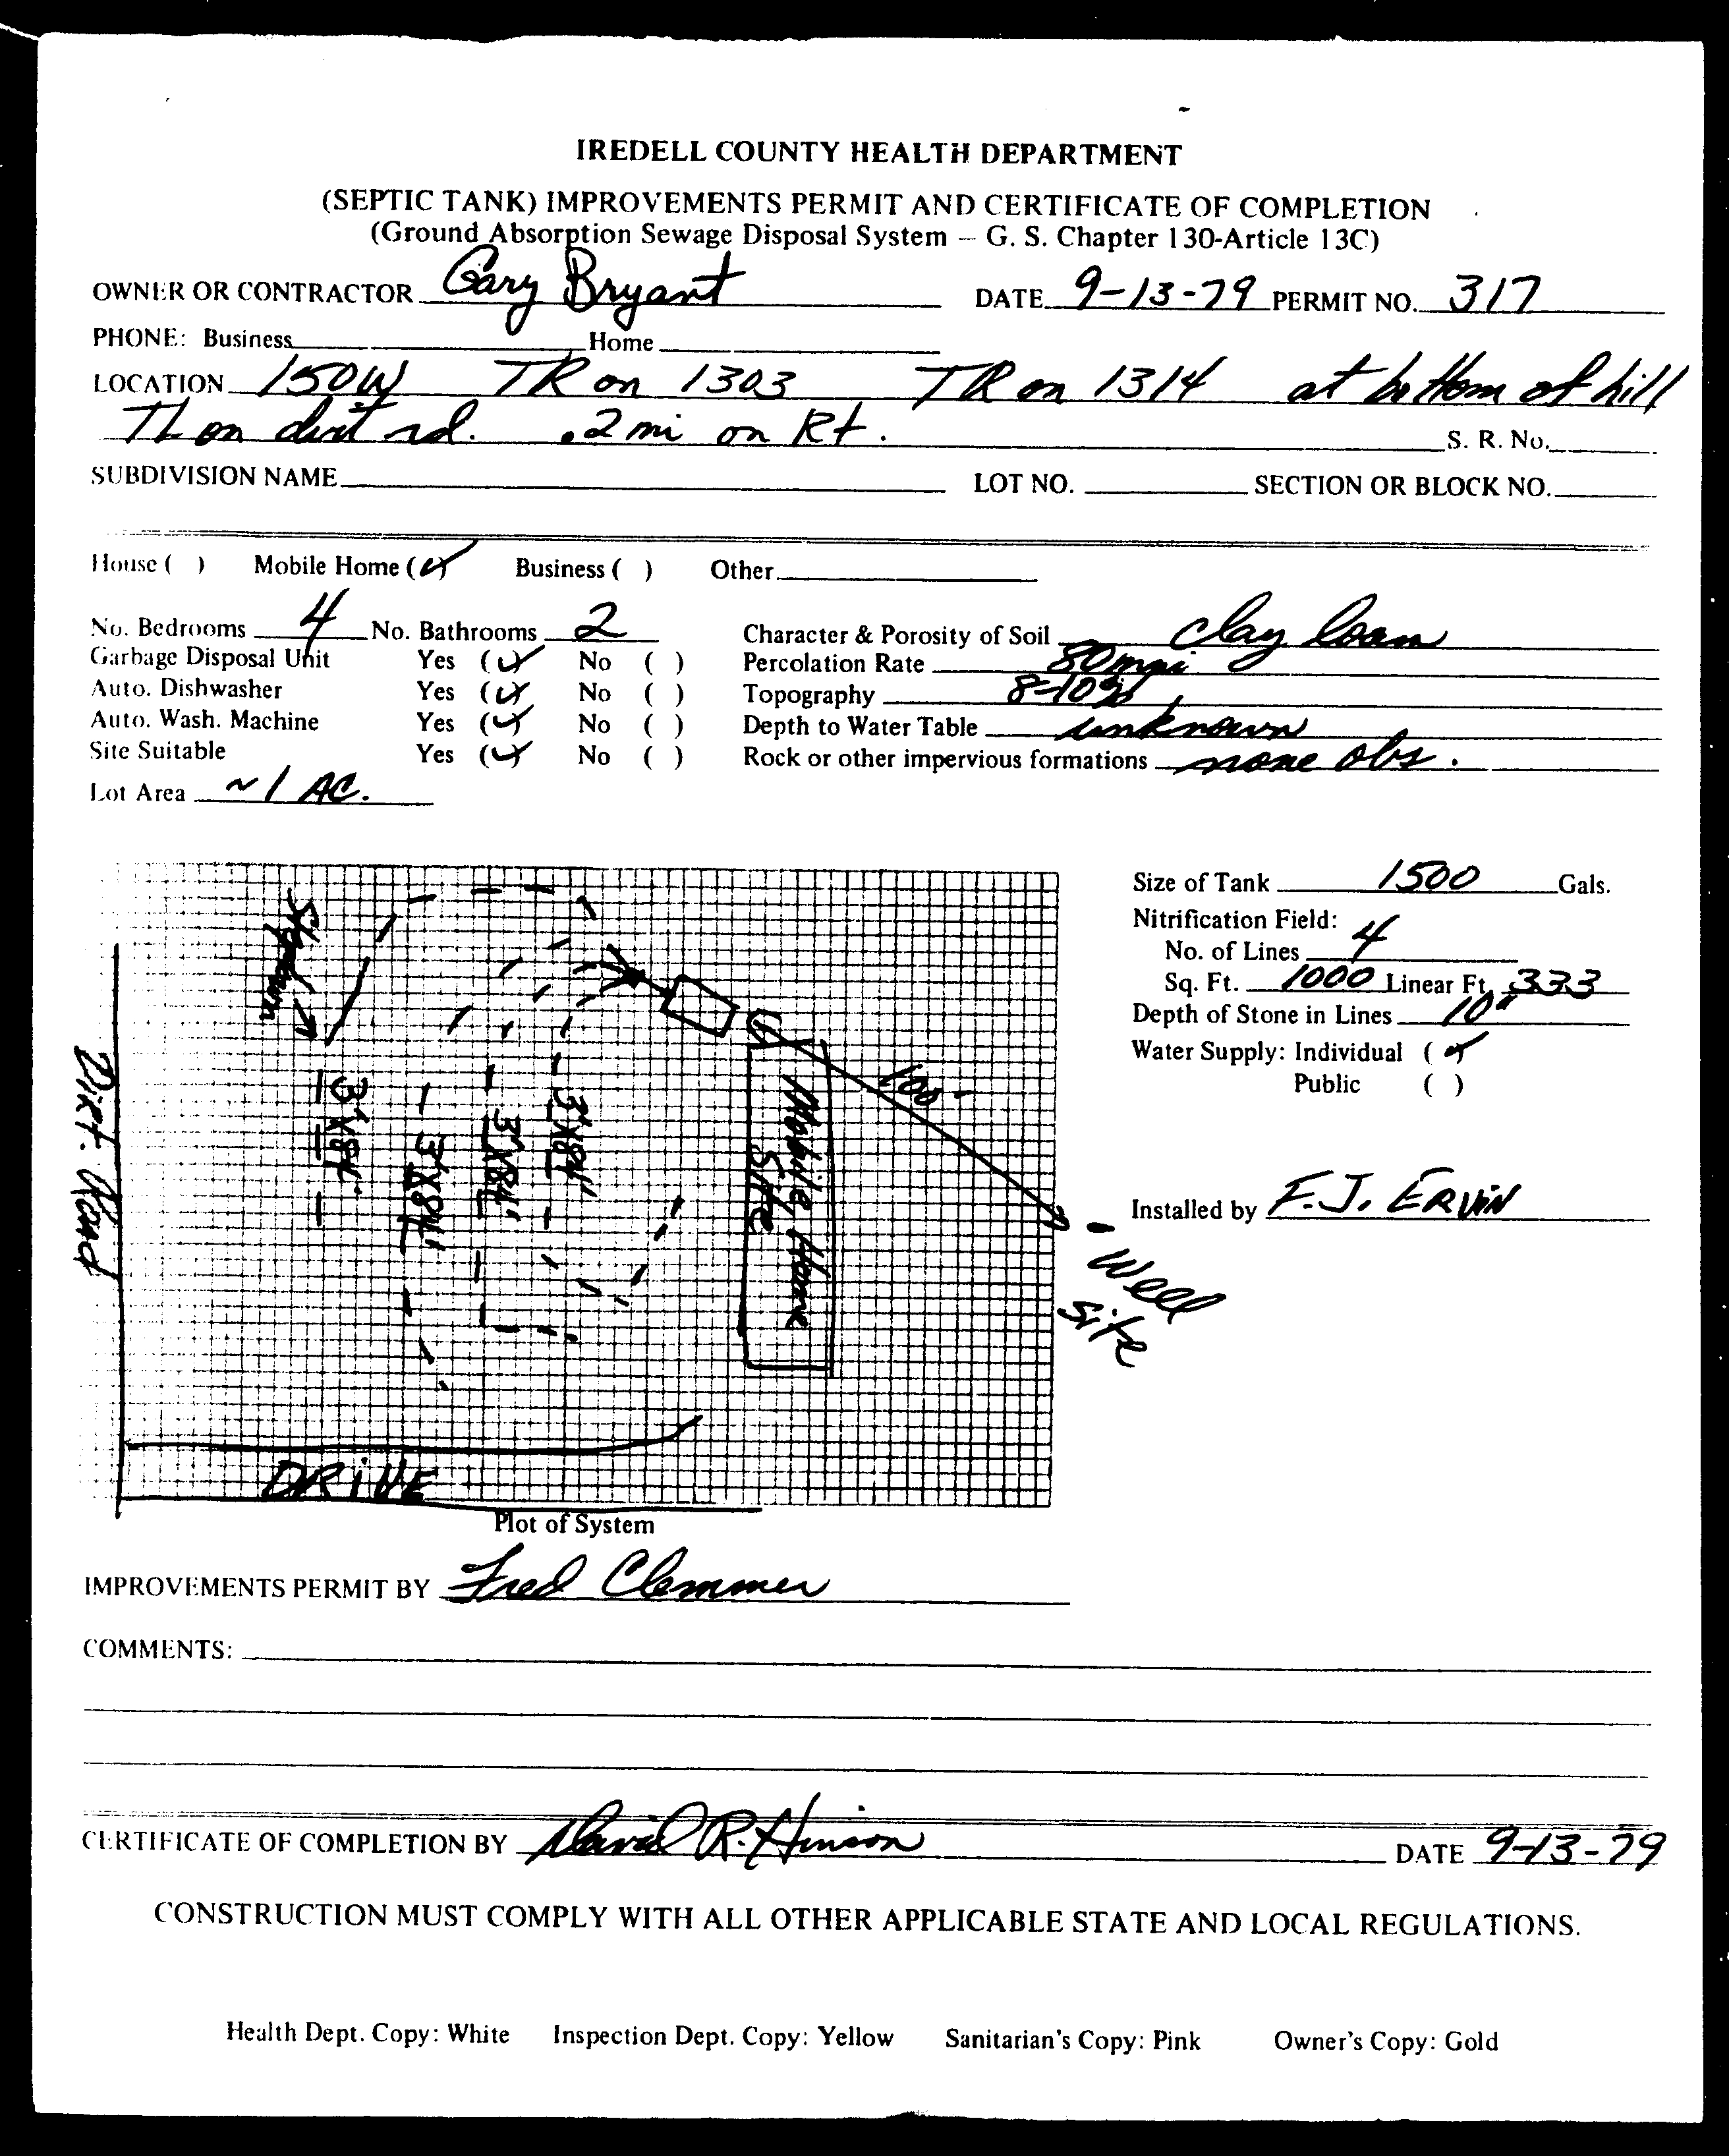 IREDELL COUNTY HEALTH DEPARTMENT
(SEPTIC TANK) IMPROVEMENTS PERMIT AND CERTIFICATE OF COMPLETION
(Ground Absorption Sewage Disposal System — G. S. Chapter 130-Article 13C)
OWNER OR CONTRACTOR Gary Bryant DATE 9-13-79 PERMIT NO. 317
PHONE: Business Home
LOCATION 150W TR on 1303 TR on 1314 at bottom of hill
TL on dirt rd. .2 mi on Rt. S. R. No.
SUBDIVISION NAME LOT NO. SECTION OR BLOCK NO.
House ( ) Mobile Home (✓) Business ( ) Other
No. Bedrooms 4 No. Bathrooms 2 Character & Porosity of Soil clay loam
Garbage Disposal Unit Yes (✓) No ( ) Percolation Rate 80 mpi
Auto. Dishwasher Yes (✓) No ( ) Topography 8-10%
Auto. Wash. Machine Yes (✓) No ( ) Depth to Water Table unknown
Site Suitable Yes (✓) No ( ) Rock or other impervious formations none obs.
Lot Area ~1 AC.
Size of Tank 1500 Gals.
Nitrification Field:
No. of Lines 4
Sq. Ft. 1000 Linear Ft. 333
Depth of Stone in Lines 10"
Water Supply: Individual (✓)
Public ( )
Installed by F.J. ERVIN
Dirt. Road
3'X84'
3'X84'
3'X84'
3'X84'
Mobile Home
Site
100'
Well
Site
DRIVE
Plot of System
IMPROVEMENTS PERMIT BY Fred Clemmer
COMMENTS:
CERTIFICATE OF COMPLETION BY David R. Hinson DATE 9-13-79
CONSTRUCTION MUST COMPLY WITH ALL OTHER APPLICABLE STATE AND LOCAL REGULATIONS.
Health Dept. Copy: White Inspection Dept. Copy: Yellow Sanitarian's Copy: Pink Owner's Copy: Gold